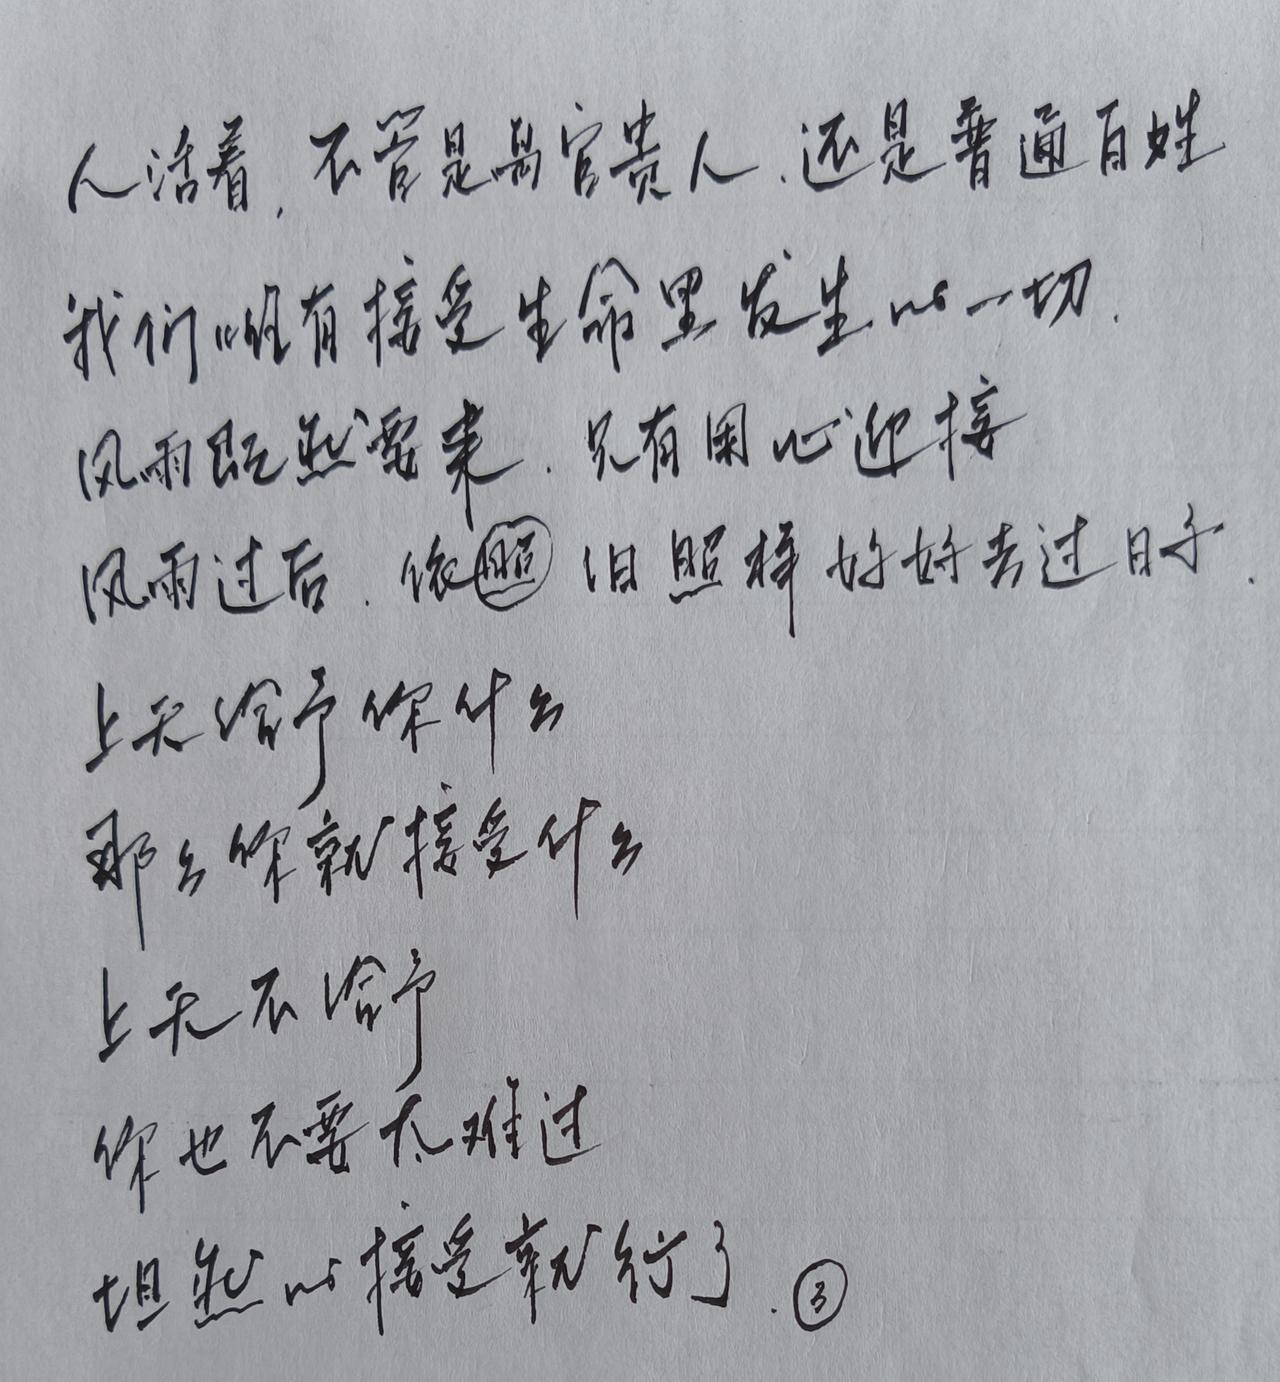 人活着,不管是高官贵人.还是普通百姓
我们唯有接受生命里发生的一切.
风雨既然要来.只有用心迎接
风雨过后.依照旧照样好好去过日子.
上天给予你什么
那么你就接受什么
上天不给予
你也不要太难过
坦然的接受就行了.③